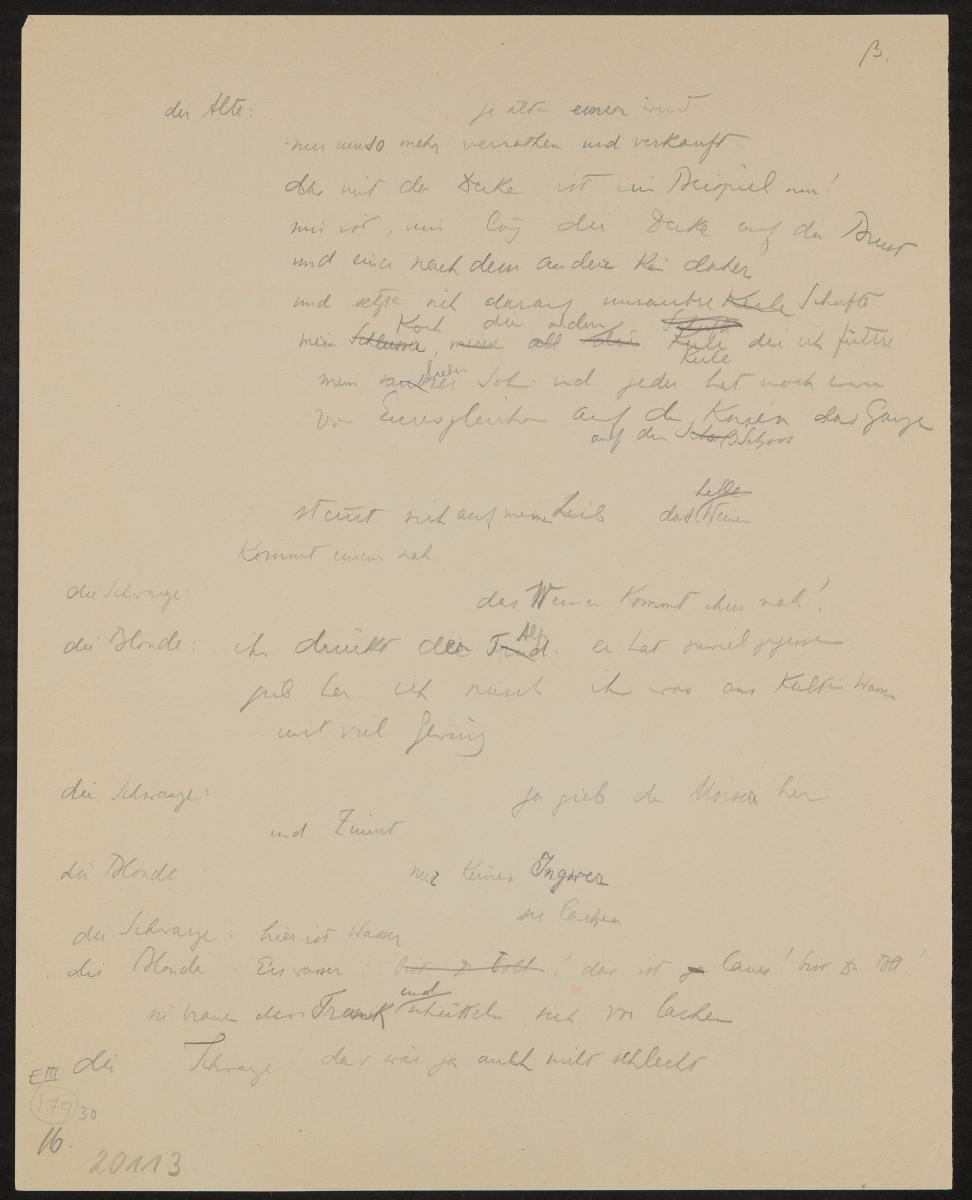 β.
der Alte: je älter einer wird
nur umso mehr verrathen und verkauft.
das mit der Decke ist ein Beispiel nur!
mir ist, mir läg die Decke auf der Brust
und einer nach dem andern käm daher
und setzte sich darauf unsaubre Kerle Schufte
Koch die andern Schufte
mein Schlosser, meine all die Kerle die ich füttre
Kerle
lieber
mein saubrer Sohn und jeder hat noch eine
von Euresgleichen auf den Knien das Ganze
auf den Schoß Schoos
helle
stemmt sich auf meinen Leib das Weinen
kommt einem nah
die Schwarze: das Weinen kommt ihm nah!
Alp
die Blonde: ihn drückt der Trud. er hat zuviel gegessen
gieb her ich misch ihm was aus kaltem Wasser
mit viel Gewürz
die Schwarze: ja gieb den Mörser her
und Zimmt
die Blonde nur keinen Ingwer
sie lachen
die Schwarze: hier ist Wasser
die Blonde: Eiswasser! bist Du toll! das ist ja laues! bist Du toll!
und
sie brauen den Trank schütteln sich vor lachen
die Schwarze: das wär ja auch nicht schlecht
E III
179 30
16.
20113